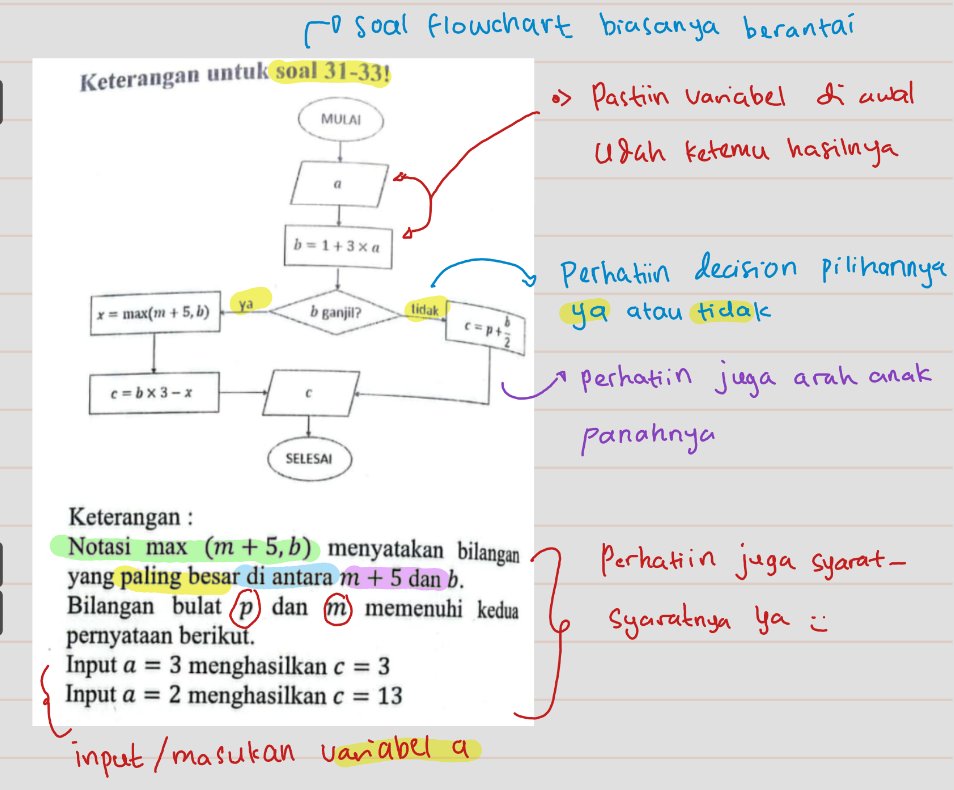 soal flowchart biasanya berantai
Keterangan untuk soal 31-33!
MULAI
a
b = 1 + 3 × a
b ganjil?
ya
tidak
x = max(m + 5, b)
c = p + b/2
c = b × 3 − x
c
SELESAI
Pastiin variabel di awal
udah ketemu hasilnya
Perhatiin decision pilihannya
ya atau tidak
perhatiin juga arah anak
panahnya
Keterangan :
Notasi max (m + 5, b) menyatakan bilangan
yang paling besar di antara m + 5 dan b.
Bilangan bulat p dan m memenuhi kedua
pernyataan berikut.
Input a = 3 menghasilkan c = 3
Input a = 2 menghasilkan c = 13
Perhatiin juga syarat-
syaratnya ya :)
input/masukan variabel a